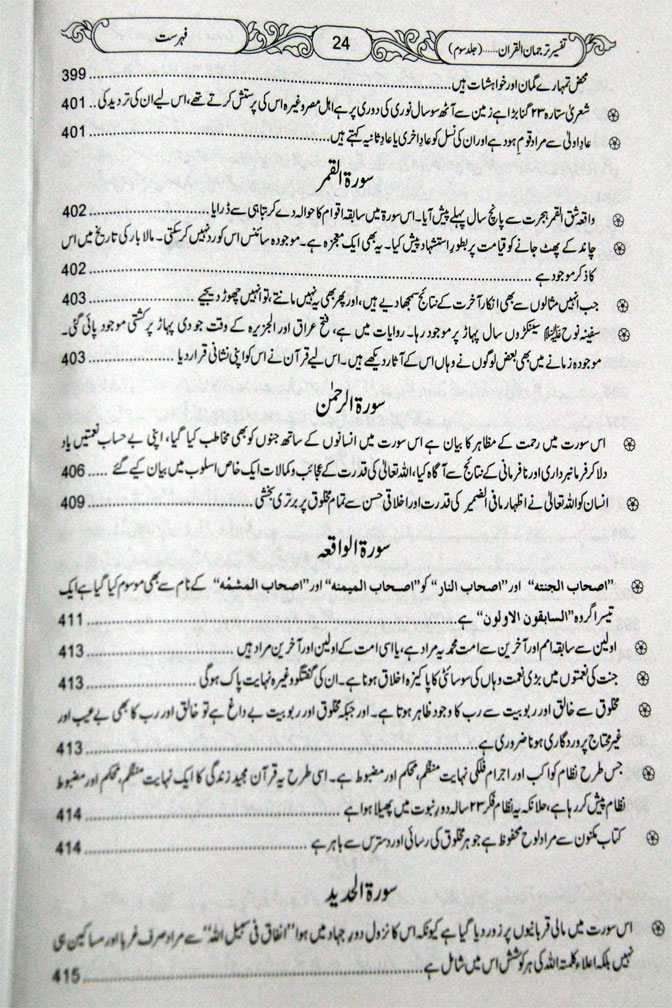 تفسیر ترجمان القرآن.....(جلد سوم)
24
فہرست
محض تمہارے گمان اور خواہشات ہیں ........ 399
شعریٰ ستارہ ۲۳ گنا بڑا ہے زمین سے آٹھ سو سال نوری کی دوری پر ہے اہل مصر وغیرہ اس کی پرستش کرتے تھے، اس لیے ان کی تردید کی .. 401
عاد اولیٰ سے مراد قوم ہود ہے اور ان کی نسل کو عاد اخریٰ یا عاد ثانیہ کہتے ہیں ........ 401
سورة القمر
واقعہ شق القمر ہجرت سے پانچ سال پہلے پیش آیا۔ اس سورۃ میں سابقہ اقوام کا حوالہ دے کر تباہی سے ڈرایا ........ 402
چاند کے پھٹ جانے کو قیامت پر بطور استشہاد پیش کیا۔ یہ بھی ایک معجزہ ہے۔ موجودہ سائنس اس کو رد نہیں کر سکتی۔ مالا بار کی تاریخ میں اس
کا ذکر موجود ہے ........ 402
جب انہیں مثالوں سے بھی انکار آخرت کے نتائج سمجھا دیے ہیں، اور پھر بھی یہ نہیں مانتے، تو انہیں چھوڑ دیجیے ........ 403
سفینہ نوح علیہ السلام سینکڑوں سال پہاڑ پر موجود رہا۔ روایات میں ہے، فتح عراق اور الجزیرہ کے وقت جودی پہاڑ پر کشتی موجود پائی گئی۔
موجودہ زمانے میں بھی بعض لوگوں نے وہاں اس کے آثار دیکھے ہیں۔ اس لیے قرآن نے اس کو اپنی نشانی قرار دیا ........ 403
سورة الرحمٰن
اس سورت میں رحمت کے مظاہر کا بیان ہے اس سورت میں انسانوں کے ساتھ جنوں کو بھی مخاطب کیا گیا، اپنی بے حساب نعمتیں یاد
دلا کر فرمانبرداری اور نافرمانی کے نتائج سے آگاہ کیا، اللہ تعالیٰ کی قدرت کے عجائب و کمالات ایک خاص اسلوب میں بیان کیے گئے ..... 406
انسان کو اللہ تعالیٰ نے اظہار مافی الضمیر کی قدرت اور اخلاقی حسن سے تمام مخلوق پر برتری بخشی ........ 409
سورة الواقعہ
"اصحاب الجنتہ" اور "اصحاب النار" کو "اصحاب المیمنہ" اور "اصحاب المشئمہ" کے نام سے بھی موسوم کیا گیا ہے ایک
تیسرا گروہ "السابقون الاولون" ہے ........ 411
اولین سے سابقہ امم اور آخرین سے امت محمدیہ مراد ہے، یا اسی امت کے اولین اور آخرین مراد ہیں ........ 413
جنت کی نعمتوں میں بڑی نعمت وہاں کی سوسائٹی کا پاکیزہ اخلاق ہونا ہے۔ ان کی گفتگو وغیرہ نہایت پاک ہوگی ........ 413
مخلوق سے خالق اور ربوبیت سے رب کا وجود ظاہر ہوتا ہے۔ اور جبکہ مخلوق اور ربوبیت بے داغ ہے تو خالق اور رب کا بھی بے عیب اور
غیر محتاج پروردگاری ہونا ضروری ہے ........ 413
جس طرح نظام کواکب اور اجرام فلکی نہایت منظم، محکم اور مضبوط ہے۔ اسی طرح یہ قرآن مجید زندگی کا ایک نہایت منظم، محکم اور مضبوط
نظام پیش کر رہا ہے، حالانکہ یہ نظام فکر ۲۳ سالہ دور نبوت میں پھیلا ہوا ہے ........ 414
کتاب مکنون سے مراد لوح محفوظ ہے جو ہر مخلوق کی رسائی اور دسترس سے باہر ہے ........ 414
سورة الحدید
اس سورت میں مالی قربانیوں پر زور دیا گیا ہے کیونکہ اس کا نزول دور جہاد میں ہوا "انفاق فی سبیل اللہ" سے مراد صرف غربا اور مساکین ہی
نہیں بلکہ اعلاء کلمتہ اللہ کی ہر کوشش اس میں شامل ہے ........ 415